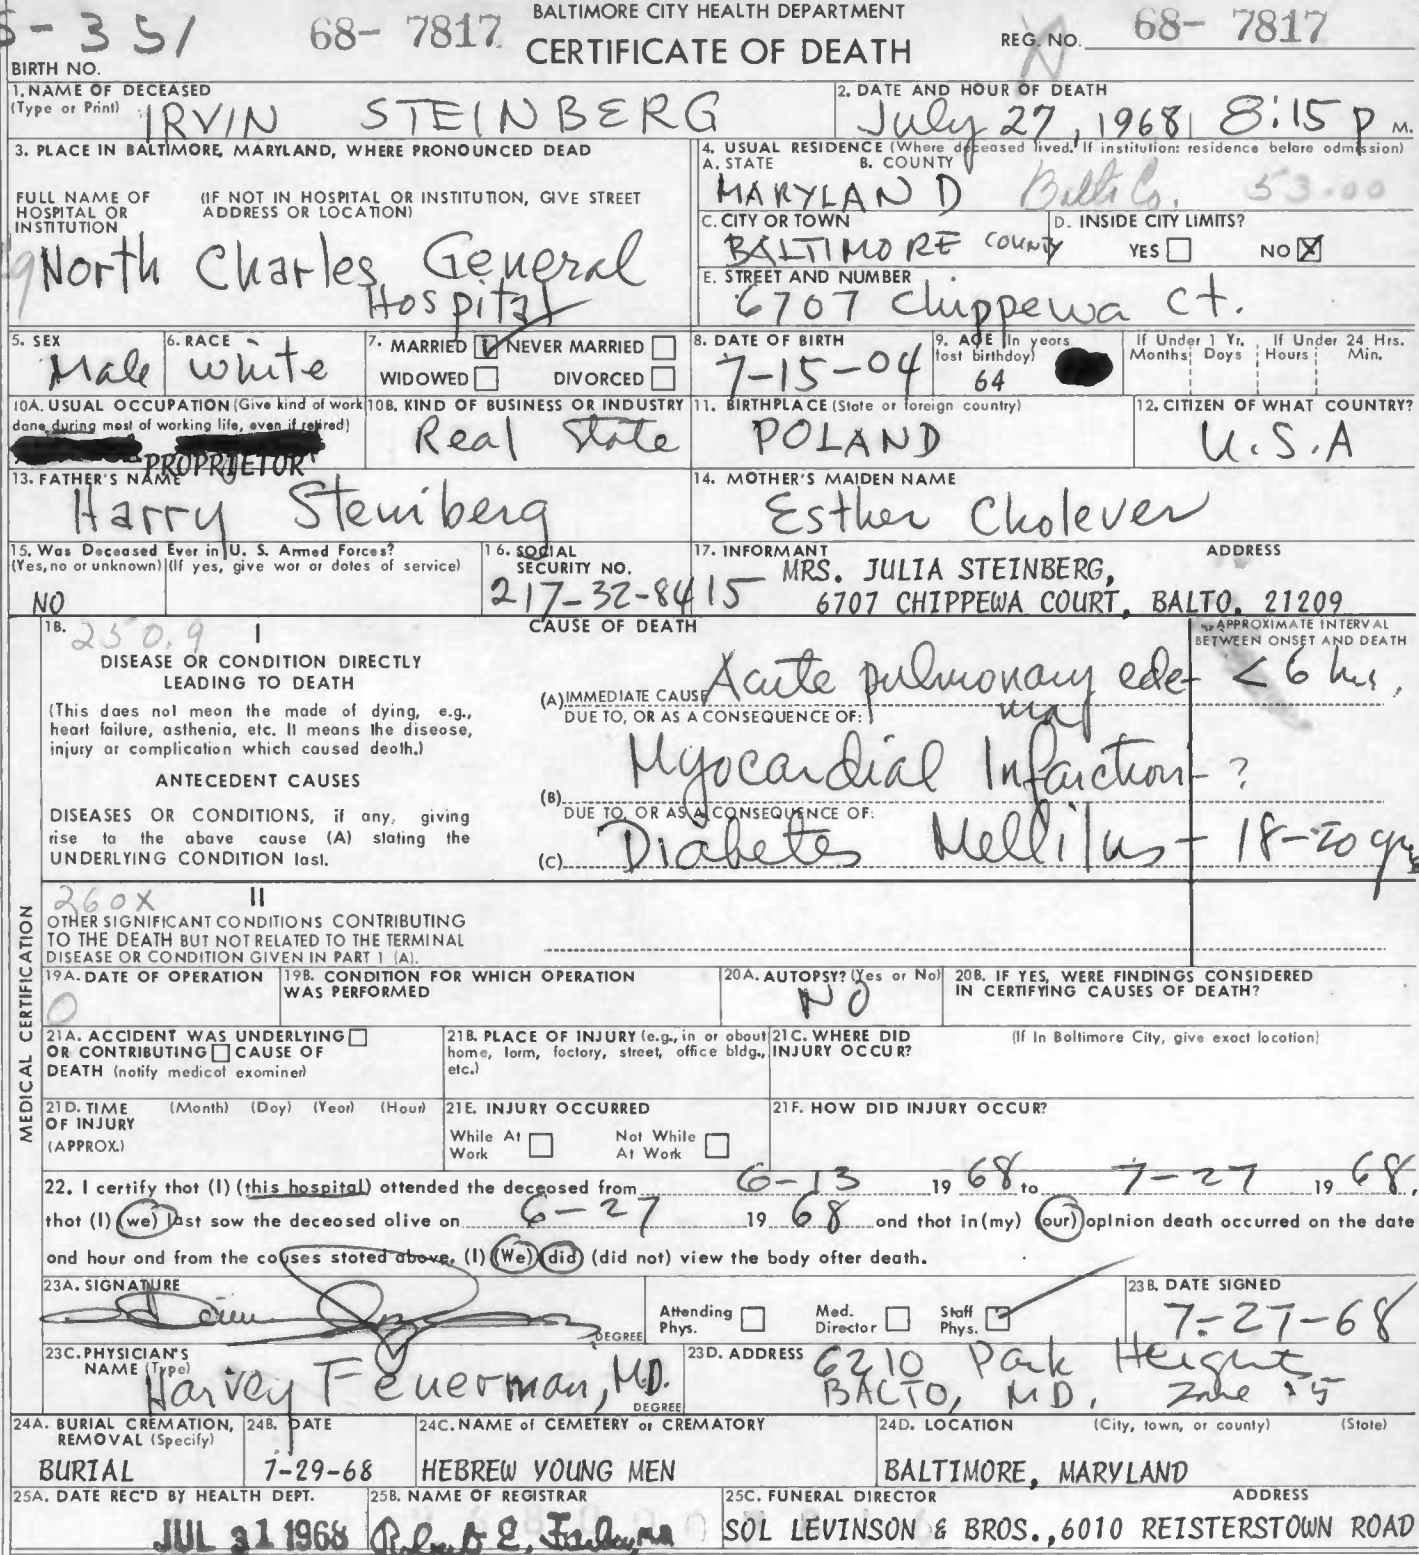 BALTIMORE CITY HEALTH DEPARTMENT
CERTIFICATE OF DEATH
-351
68- 7817
REG. NO. 68- 7817
BIRTH NO.
1. NAME OF DECEASED
(Type or Print)
IRVIN STEINBERG
2. DATE AND HOUR OF DEATH
July 27, 1968 8:15 P M.
3. PLACE IN BALTIMORE, MARYLAND, WHERE PRONOUNCED DEAD
FULL NAME OF HOSPITAL OR INSTITUTION
(IF NOT IN HOSPITAL OR INSTITUTION, GIVE STREET ADDRESS OR LOCATION)
North Charles General
Hospital
4. USUAL RESIDENCE (Where deceased lived. If institution: residence before admission)
A. STATE B. COUNTY
MARYLAND Balto Co. 53.00
C. CITY OR TOWN
BALTIMORE COUNTY
D. INSIDE CITY LIMITS?
YES NO X
E. STREET AND NUMBER
6707 Chippewa Ct.
5. SEX
Male
6. RACE
White
7. MARRIED NEVER MARRIED
WIDOWED DIVORCED
8. DATE OF BIRTH
7-15-04
9. AGE (In years last birthday)
64
If Under 1 Yr. If Under 24 Hrs.
Months Days Hours Min.
10A. USUAL OCCUPATION (Give kind of work done during most of working life, even if retired)
PROPRIETOR
10B. KIND OF BUSINESS OR INDUSTRY
Real State
11. BIRTHPLACE (State or foreign country)
POLAND
12. CITIZEN OF WHAT COUNTRY?
U.S.A
13. FATHER'S NAME
Harry Steinberg
14. MOTHER'S MAIDEN NAME
Esther Cholever
15. Was Deceased Ever in U. S. Armed Forces?
(Yes, no or unknown) (If yes, give war or dates of service)
NO
16. SOCIAL SECURITY NO.
217-32-8415
17. INFORMANT ADDRESS
MRS. JULIA STEINBERG,
6707 CHIPPEWA COURT, BALTO. 21209
18. 250.9 I
CAUSE OF DEATH
APPROXIMATE INTERVAL BETWEEN ONSET AND DEATH
DISEASE OR CONDITION DIRECTLY
LEADING TO DEATH
(This does not mean the mode of dying, e.g.,
heart failure, asthenia, etc. It means the disease,
injury or complication which caused death.)
ANTECEDENT CAUSES
DISEASES OR CONDITIONS, if any, giving
rise to the above cause (A) stating the
UNDERLYING CONDITION last.
(A) IMMEDIATE CAUSE Acute pulmonary ede- < 6 hrs.
ma
DUE TO, OR AS A CONSEQUENCE OF:
(B) Myocardial Infarction - ?
DUE TO, OR AS A CONSEQUENCE OF:
(C) Diabetes Mellitus - 18-20 yrs
260X II
OTHER SIGNIFICANT CONDITIONS CONTRIBUTING
TO THE DEATH BUT NOT RELATED TO THE TERMINAL
DISEASE OR CONDITION GIVEN IN PART 1 (A).
MEDICAL CERTIFICATION
19A. DATE OF OPERATION
0
19B. CONDITION FOR WHICH OPERATION WAS PERFORMED
20A. AUTOPSY? (Yes or No)
NO
20B. IF YES, WERE FINDINGS CONSIDERED IN CERTIFYING CAUSES OF DEATH?
21A. ACCIDENT WAS UNDERLYING
OR CONTRIBUTING CAUSE OF
DEATH (notify medical examiner)
21B. PLACE OF INJURY (e.g., in or about home, farm, factory, street, office bldg., etc.)
21C. WHERE DID INJURY OCCUR?
(If In Baltimore City, give exact location)
21D. TIME OF INJURY (APPROX.)
(Month) (Day) (Year) (Hour)
21E. INJURY OCCURRED
While At Work Not While At Work
21F. HOW DID INJURY OCCUR?
22. I certify that (I) (this hospital) attended the deceased from 6-13 19 68 to 7-27 19 68,
that (I) (we) last saw the deceased alive on 6-27 19 68 and that in (my) (our) opinion death occurred on the date
and hour and from the causes stated above. (I) (We) (did) (did not) view the body after death.
23A. SIGNATURE
DEGREE
Attending Phys. Med. Director Staff Phys.
23B. DATE SIGNED
7-27-68
23C. PHYSICIAN'S NAME (Type)
Harvey Feuerman, M.D.
DEGREE
23D. ADDRESS
6210 Park Heights
BALTO, MD. Zone 15
24A. BURIAL CREMATION, REMOVAL (Specify)
BURIAL
24B. DATE
7-29-68
24C. NAME of CEMETERY or CREMATORY
HEBREW YOUNG MEN
24D. LOCATION (City, town, or county) (State)
BALTIMORE, MARYLAND
25A. DATE REC'D BY HEALTH DEPT.
JUL 31 1968
25B. NAME OF REGISTRAR
Robert E. Farber, MD
25C. FUNERAL DIRECTOR ADDRESS
SOL LEVINSON & BROS., 6010 REISTERSTOWN ROAD